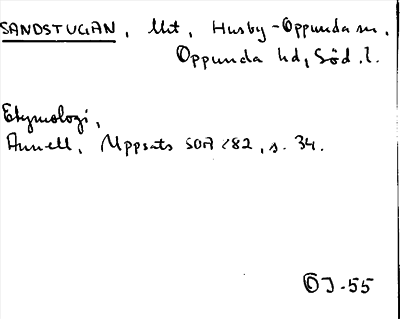 SANDSTUGAN, Uht, Husby-Oppunda sn,
Oppunda hd, Söd. l.
Etymologi,
Annell, Uppsats SOA 282, s. 34.
OJ-55